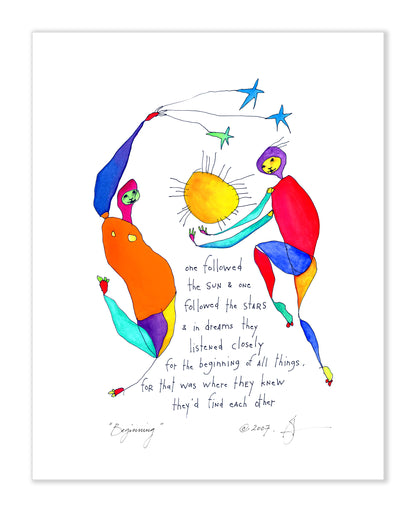 one followed
the SUN & one
followed the STARS
& in dreams they
listened closely
for the beginning of all things,
for that was where they knew
they'd find each other
"Beginning"
© 2007.